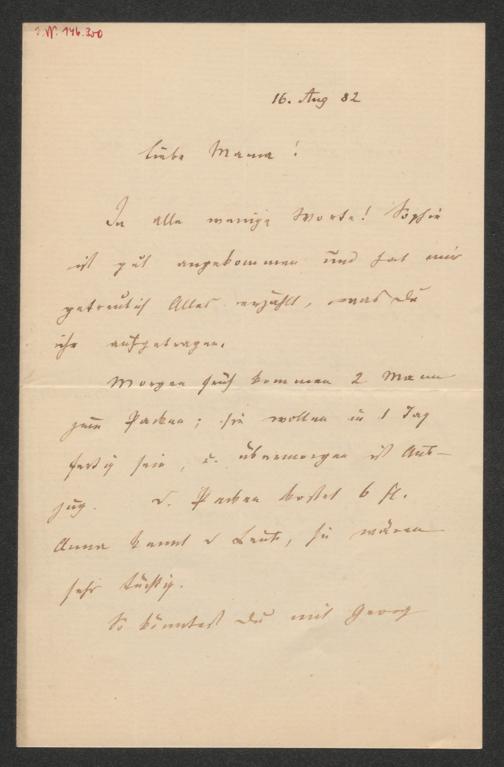 I.N. 146.200
16. Aug 82
Liebe Mama!
In alle wenige Worte! Sophie
ist gut angekommen und hat mir
getreulich Alles erzählt, was Du
ihr aufgetragen.
Morgen früh kommen 2 Mann
zum Packen; sie wollen in 1 Tag
fertig sein, u. übermorgen ist Aus-
zug. d. Packen kostet 6 fl.
Anna kennt d Leute, sie wären
sehr tüchtig.
So könntest Du mit Georg